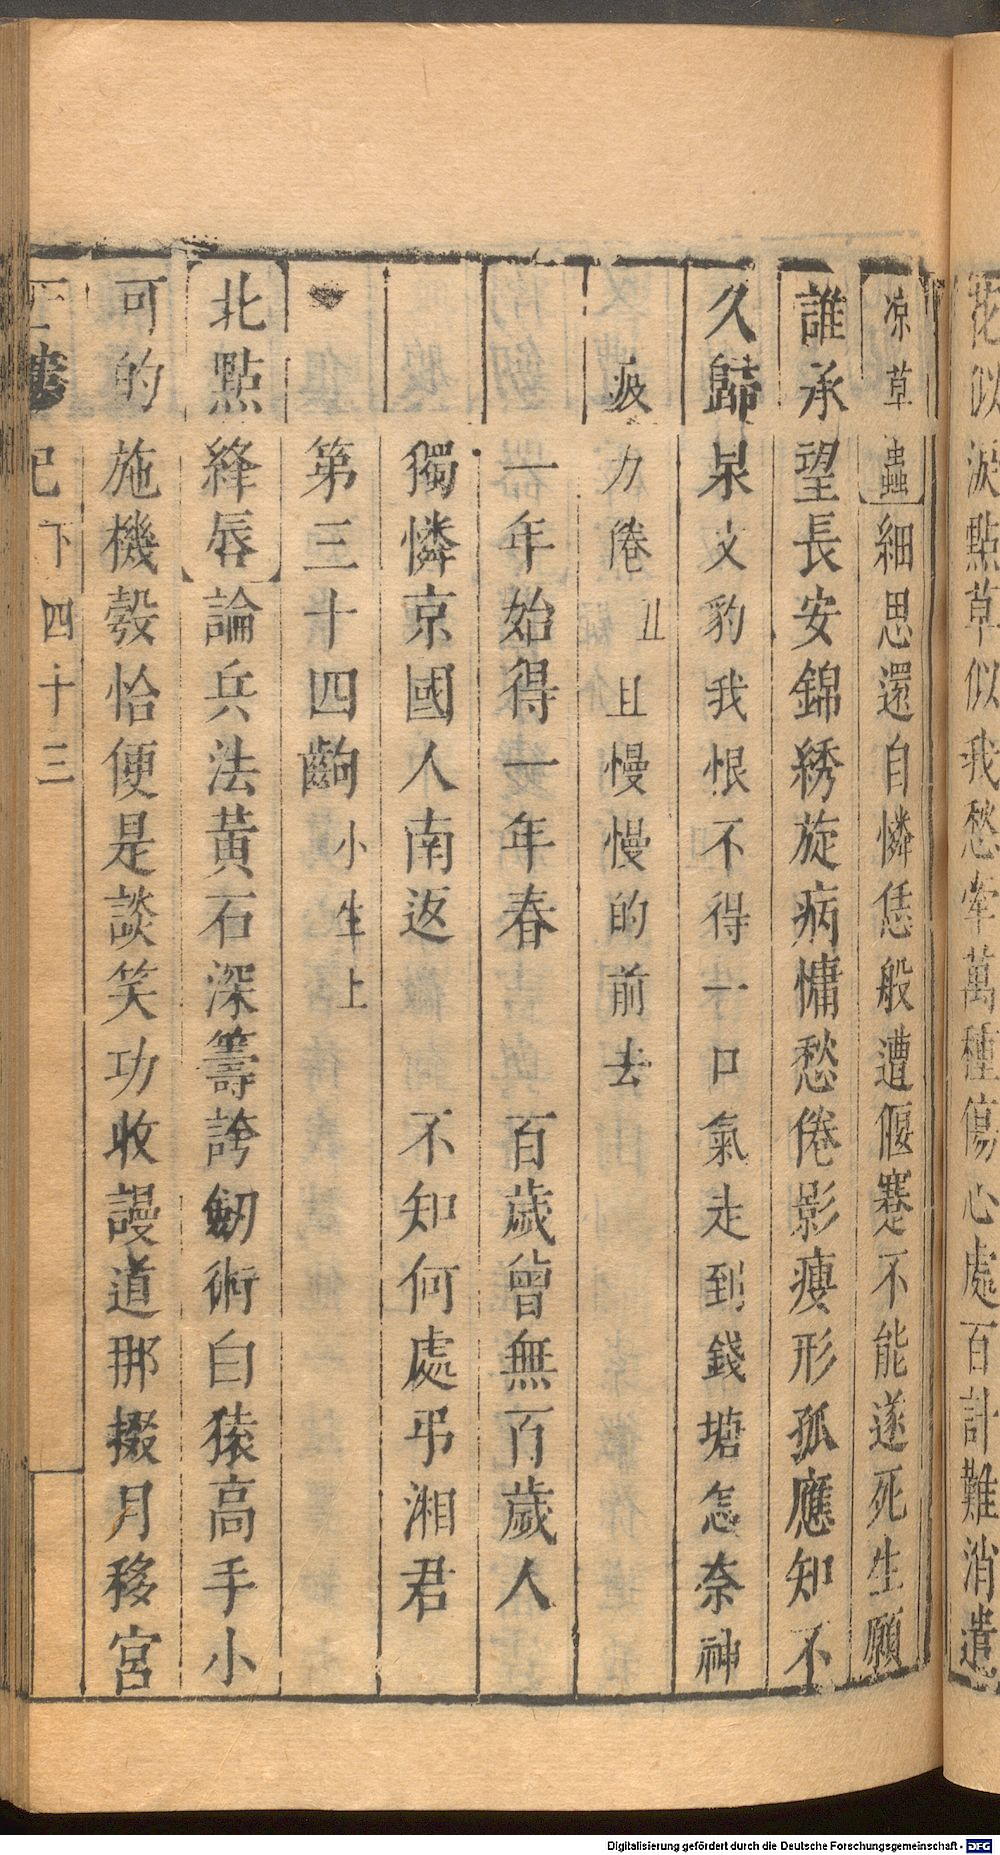 花似淚點草似我愁牽萬種傷心處百計難消遣
凉草蟲細思還自憐恁般遭偃蹇不能遂死生願
誰承望長安錦綉旋病慵愁倦影瘦形孤應知不
久歸杲文豹我恨不得一口氣走到錢塘怎奈神
疲力倦且慢慢的前去
一年始得一年春 百歲曾無百歲人
獨憐京國人南返 不知何處弔湘君
第三十四齣小生上
北點絳唇論兵法黃石深籌誇劒術白猿高手小
可的施機彀恰便是談笑功收謾道那掇月移宮
記下四十三
Digitalisierung gefördert durch die Deutsche Forschungsgemeinschaft - DFG